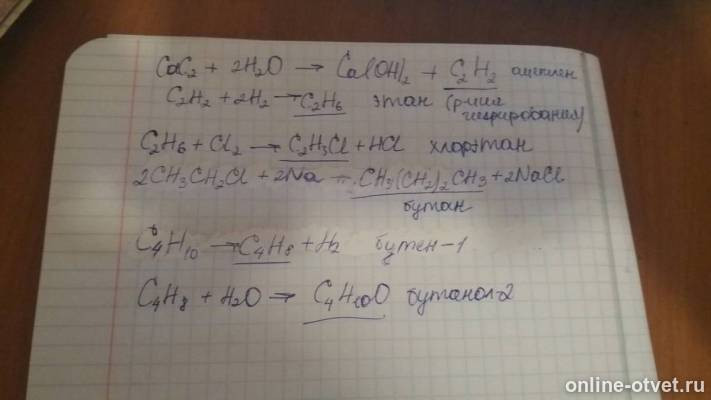 CaC2 + 2H2O → Ca(OH)2 + C2H2 ацетилен
C2H2 + 2H2 → C2H6 этан (р-ция
гидрирования)
C2H6 + Cl2 → C2H5Cl + HCl хлорэтан
2CH3CH2Cl + 2Na → CH3(CH2)2CH3 + 2NaCl
бутан
C4H10 → C4H8 + H2 бутен-1
C4H8 + H2O → C4H10O бутанол-2
online-otvet.ru